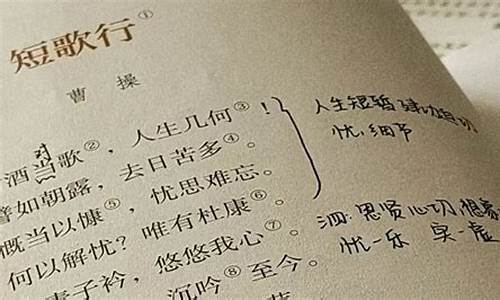 短歌行①
曹 操
对
酒当歌②,人生几何③!
譬如朝露,去日苦多④。
慨当以慷⑤,忧思难忘。
何以解忧?唯有杜康⑥。
青子衿,悠悠我心⑦。
沉吟⑧至今。
人生短暂 建功
忧:细节
思贤心切
忧—乐 实—虚